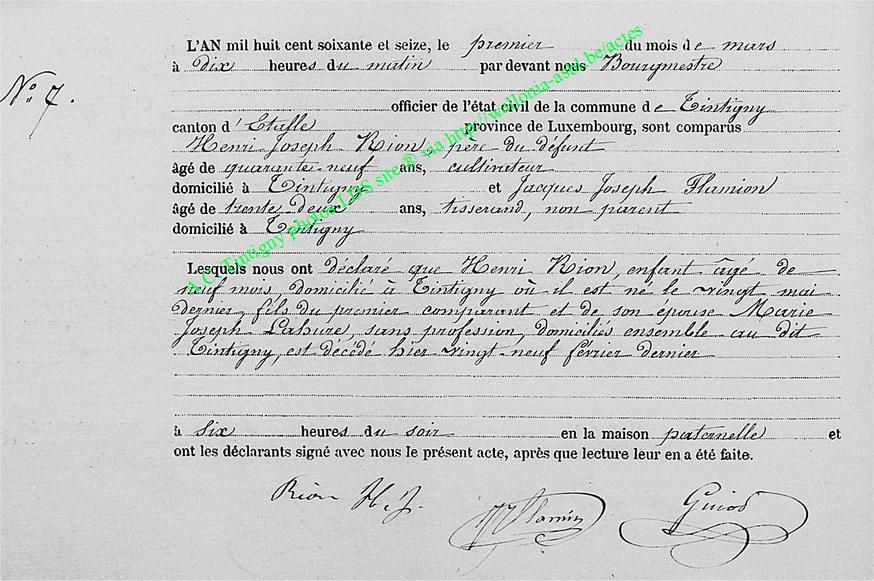 L'AN mil huit cent soixante et seize, le premier du mois de mars
à dix heures du matin par devant nous Bourgmestre
N° 7.
officier de l'état civil de la commune de Tintigny
canton d'Etalle province de Luxembourg, sont comparus
Henri Joseph Rion, père du défunt
âgé de quarante-neuf ans, cultivateur
domicilié à Tintigny et Jacques Joseph Flamion
âgé de trente deux ans, tisserand, non parent
domicilié à Tintigny
Lesquels nous ont déclaré que Henri Rion, enfant âgé de
neuf mois, domicilié à Tintigny où il est né le vingt mai
dernier, fils du premier comparant et de son épouse Marie
Joseph Lahure, sans profession, domiciliés ensemble au dit
Tintigny, est décédé hier vingt-neuf février dernier
à six heures du soir en la maison paternelle et
ont les déclarants signé avec nous le présent acte, après que lecture leur en a été faite.
Rion H. J. JJFlamion Guiod
A.C. Tintigny photos LDS site ® via http://wallonia-asbl.be/actes